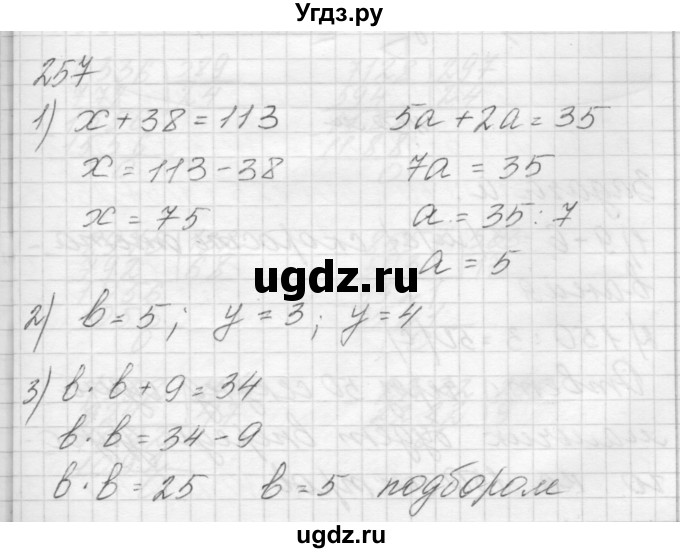 Угдз.ру
257
1) x + 38 = 113    5a + 2a = 35
x = 113 - 38    7a = 35
x = 75    a = 35 : 7
a = 5
ugdz.ru
2) b = 5; y = 3; y = 4
3) b · b + 9 = 34
b · b = 34 - 9
b · b = 25    b = 5 подбором
ugdz.ru